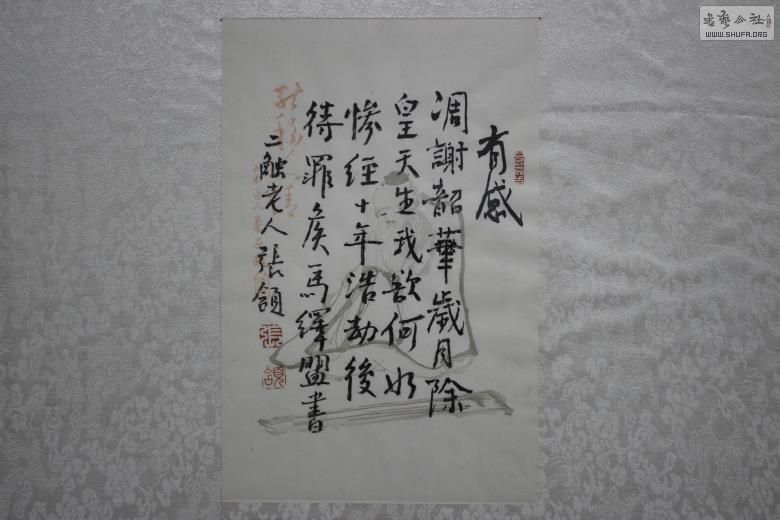 有感
凋謝韶華歲月除
皇天生我欲何如
惨經十年浩劫後
待罪侯馬繹盟書
二觸老人張頷
張
頷
書法公社
WWW.SHUFA.ORG